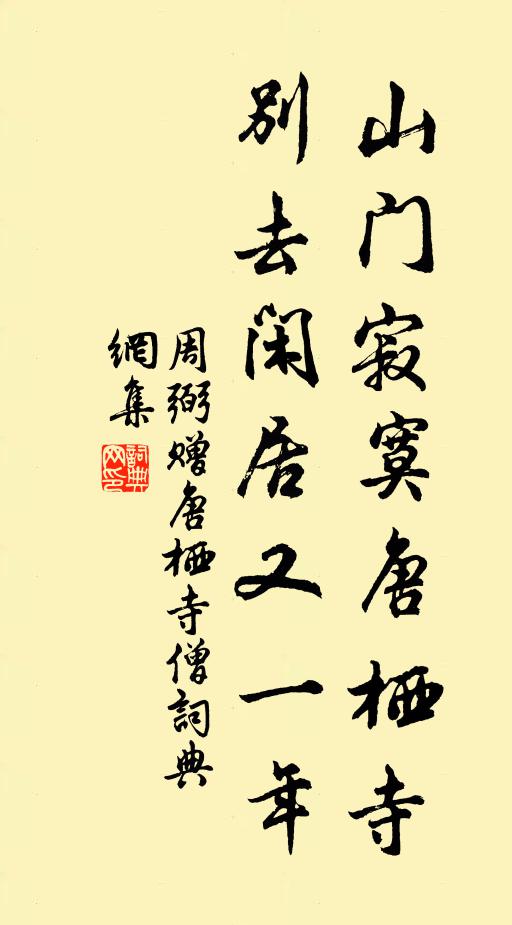 山门寂寞唐栖寺
别去闲居又一年
周弼赠唐栖寺僧詞典
網集
詞典网印